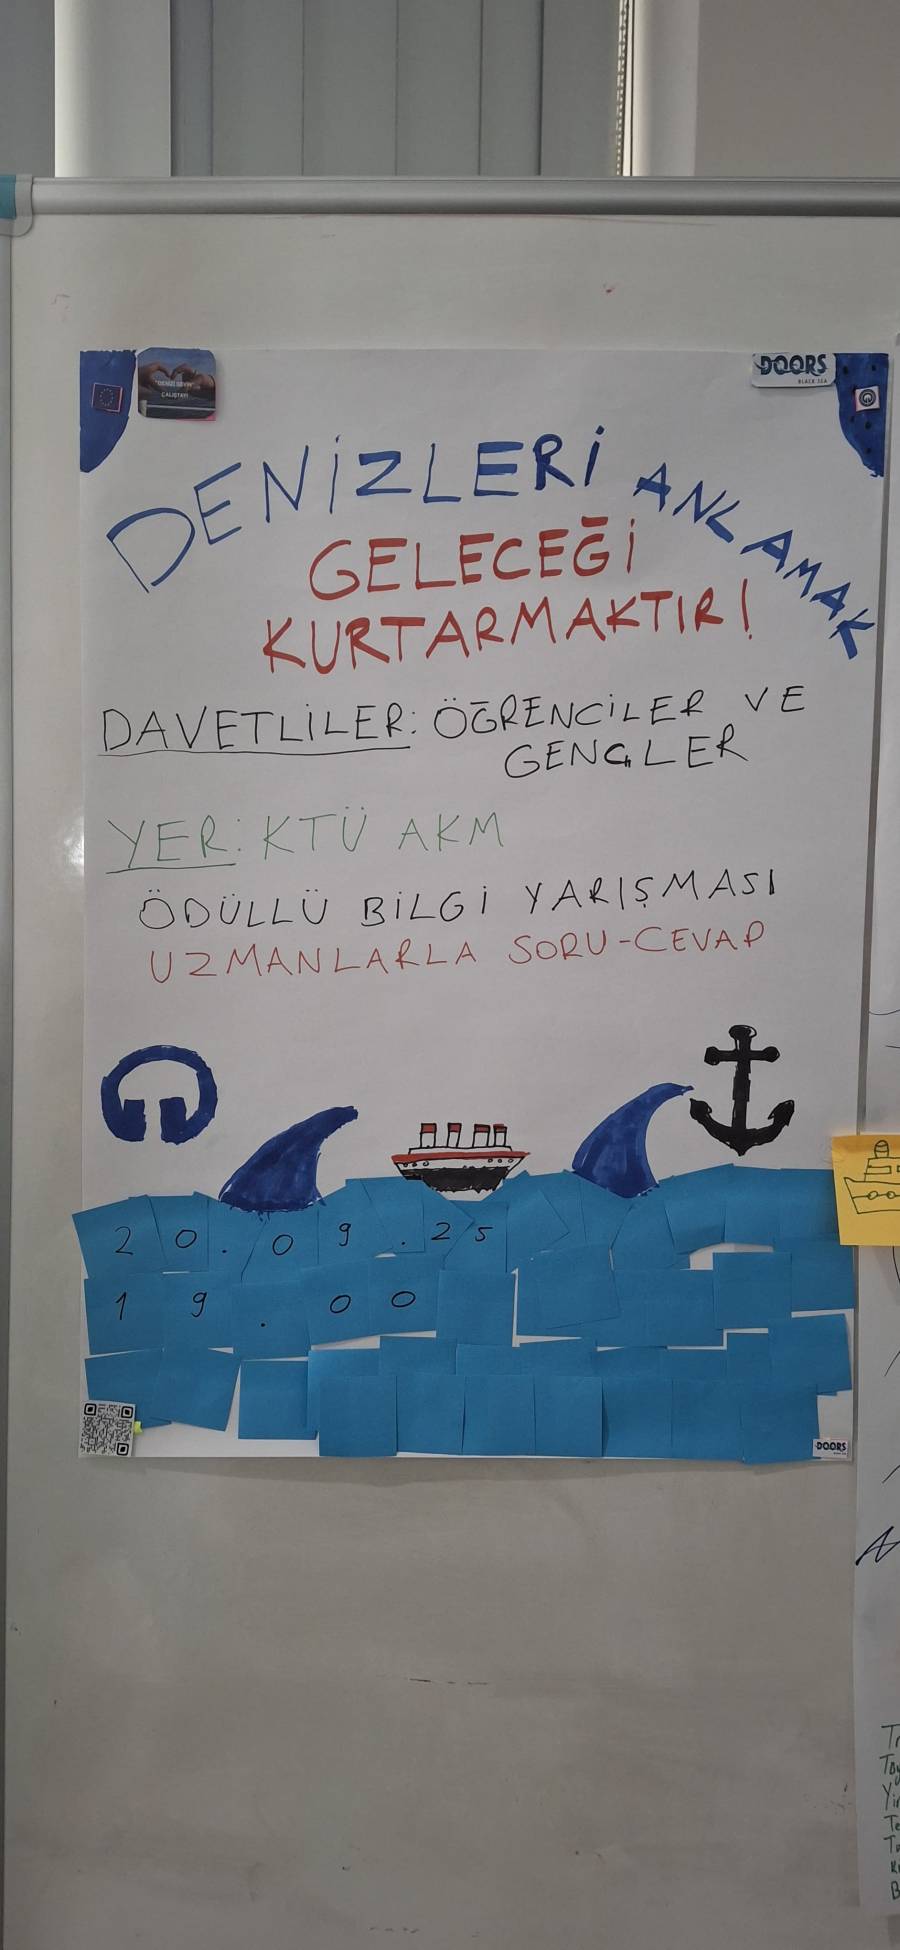 "DENİZİ SEVİN"
ÇALIŞTAYI
DOORS
BLACK SEA
DENİZLERİ ANLAMAK
GELECEĞİ
KURTARMAKTIR!
DAVETLİLER: ÖĞRENCİLER VE
GENÇLER
YER: KTÜ AKM
ÖDÜLLÜ BİLGİ YARIŞMASI
UZMANLARLA SORU-CEVAP
20.09.25
19.00
DOORS